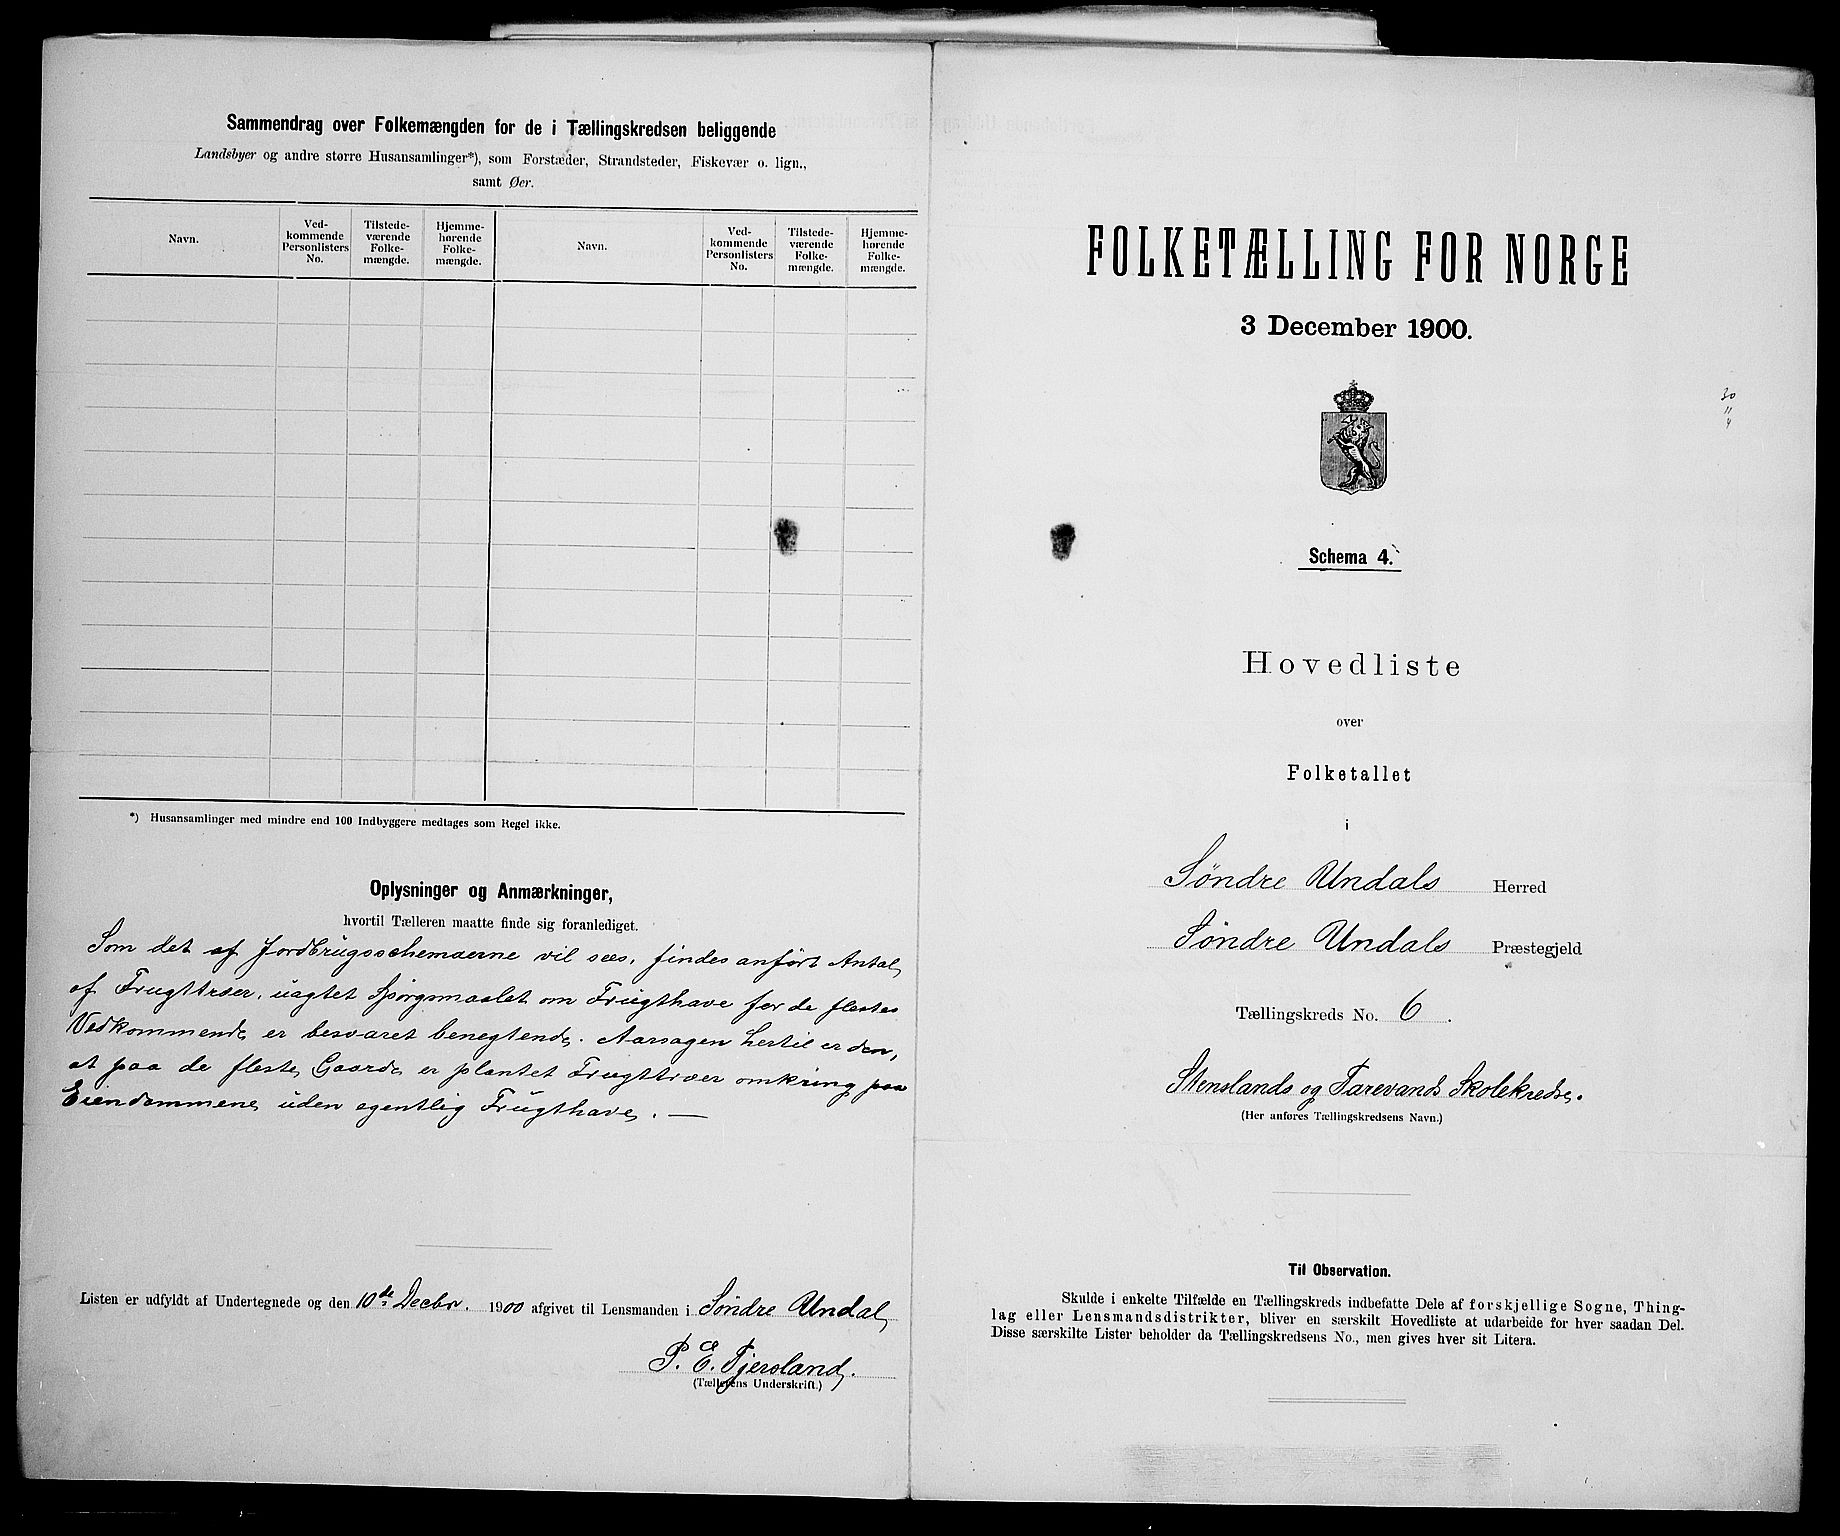 Sammendrag over Folkemængden for de i Tællingskredsen beliggende
Landsbyer og andre større Husansamlinger*), som Forstæder, Strandsteder, Fiskevær o. lign.,
samt Øer.
Navn.
Ved-
kommende
Personlisters
No.
Tilstede-
værende
Folke-
mængde.
Hjemme-
hørende
Folke-
mængde.
Navn.
Ved-
kommende
Personlisters
No.
Tilstede-
værende
Folke-
mængde.
Hjemme-
hørende
Folke-
mængde.
*) Husansamlinger med mindre end 100 Indbyggere medtages som Regel ikke.
Oplysninger og Anmærkninger,
hvortil Tælleren maatte finde sig foranlediget.
Som det af Jordbrugsschemaerne vil sees, findes anført Antal
af Frugttræer, uagtet Spørgsmaalet om Frugthave for de flestes
Vedkommende er besvaret benegtende. Aarsagen hertil er den,
at paa de fleste Gaarde er plantet Frugttræer omkring paa
Eiendommene uden egentlig Frugthave. —
Listen er udfyldt af Undertegnede og den 10de Decbr. 1900 afgivet til Lensmanden i Søndre Undal
P. E. Tjersland.
(Tællerens Underskrift.)
FOLKETÆLLING FOR NORGE
3 December 1900.
30
11
4
Schema 4.
Hovedliste
over
Folketallet
i
Søndre Undals Herred
Søndre Undals Præstegjeld
Tællingskreds No. 6.
Stenslands og Tarevands Skolekredse.
(Her anføres Tællingskredsens Navn.)
Til Observation.
Skulde i enkelte Tilfælde en Tællingskreds indbefatte Dele af forskjellige Sogne, Thing-
lag eller Lensmandsdistrikter, bliver en særskilt Hovedliste at udarbeide for hver saadan Del.
Disse særskilte Lister beholder da Tællingskredsens No., men gives hver sit Litera.